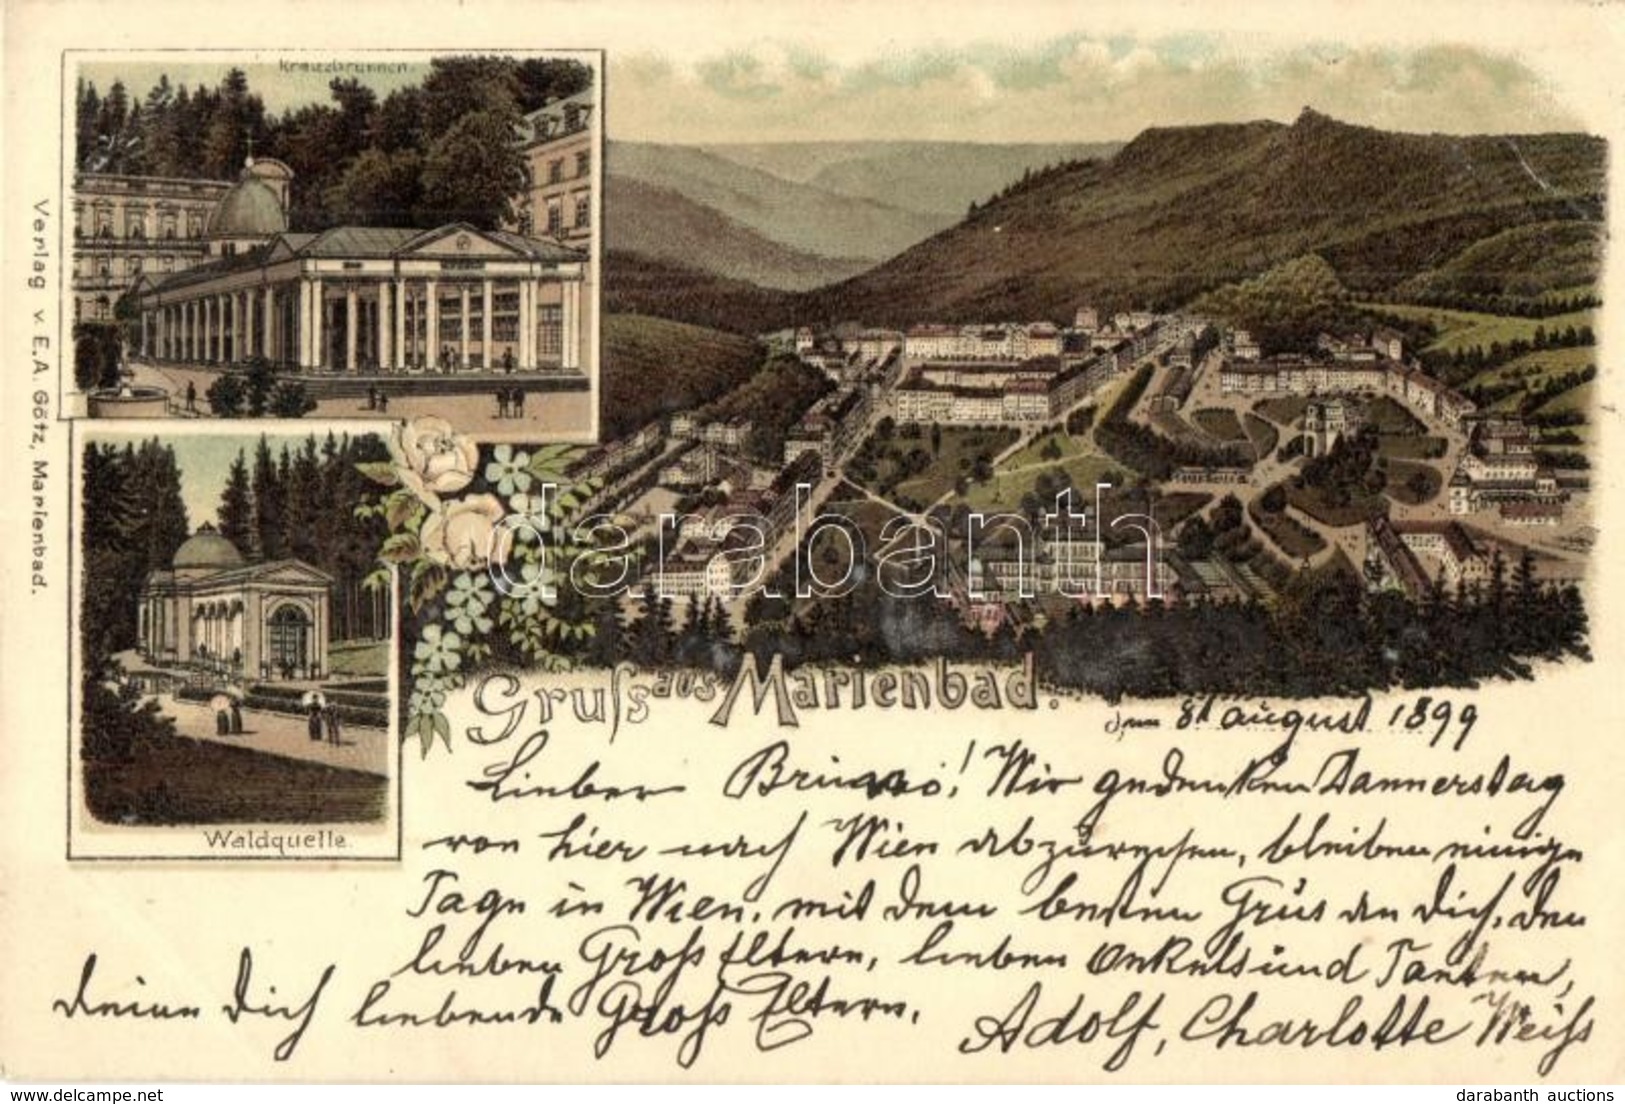 Kreuzbrunnen.
Verlag v. E.A. Götz, Marienbad.
Waldquelle.
darabanth
Gruſs aus Marienbad.
8t august 1899
Lieber Bruno! Wir gedenken Dannerstag
von hier nach Wien abzureisen, bleiben einige
Tage in Wien. mit dem besten Grüs an dich, den
lieben Groß Eltern, lieben Onkels und Tanten,
deine dich liebende Groß Eltern.
Adolf, Charlotte Weiss
delcampe.net
darabanth auctions